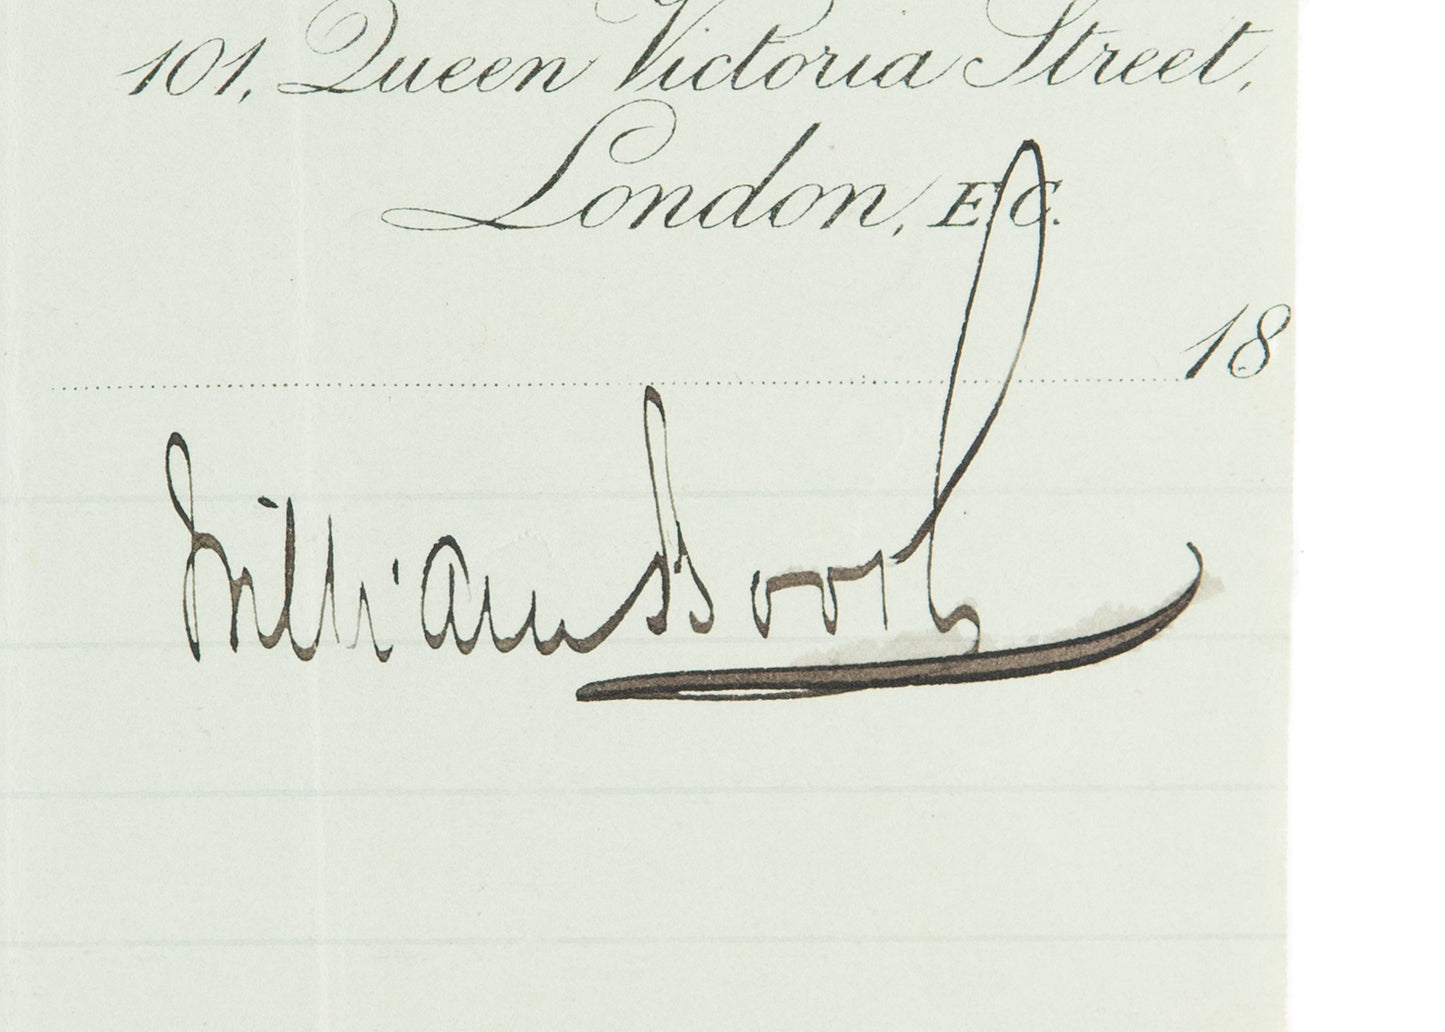 101, Queen Victoria Street,
London, E.C.
18
William Booth